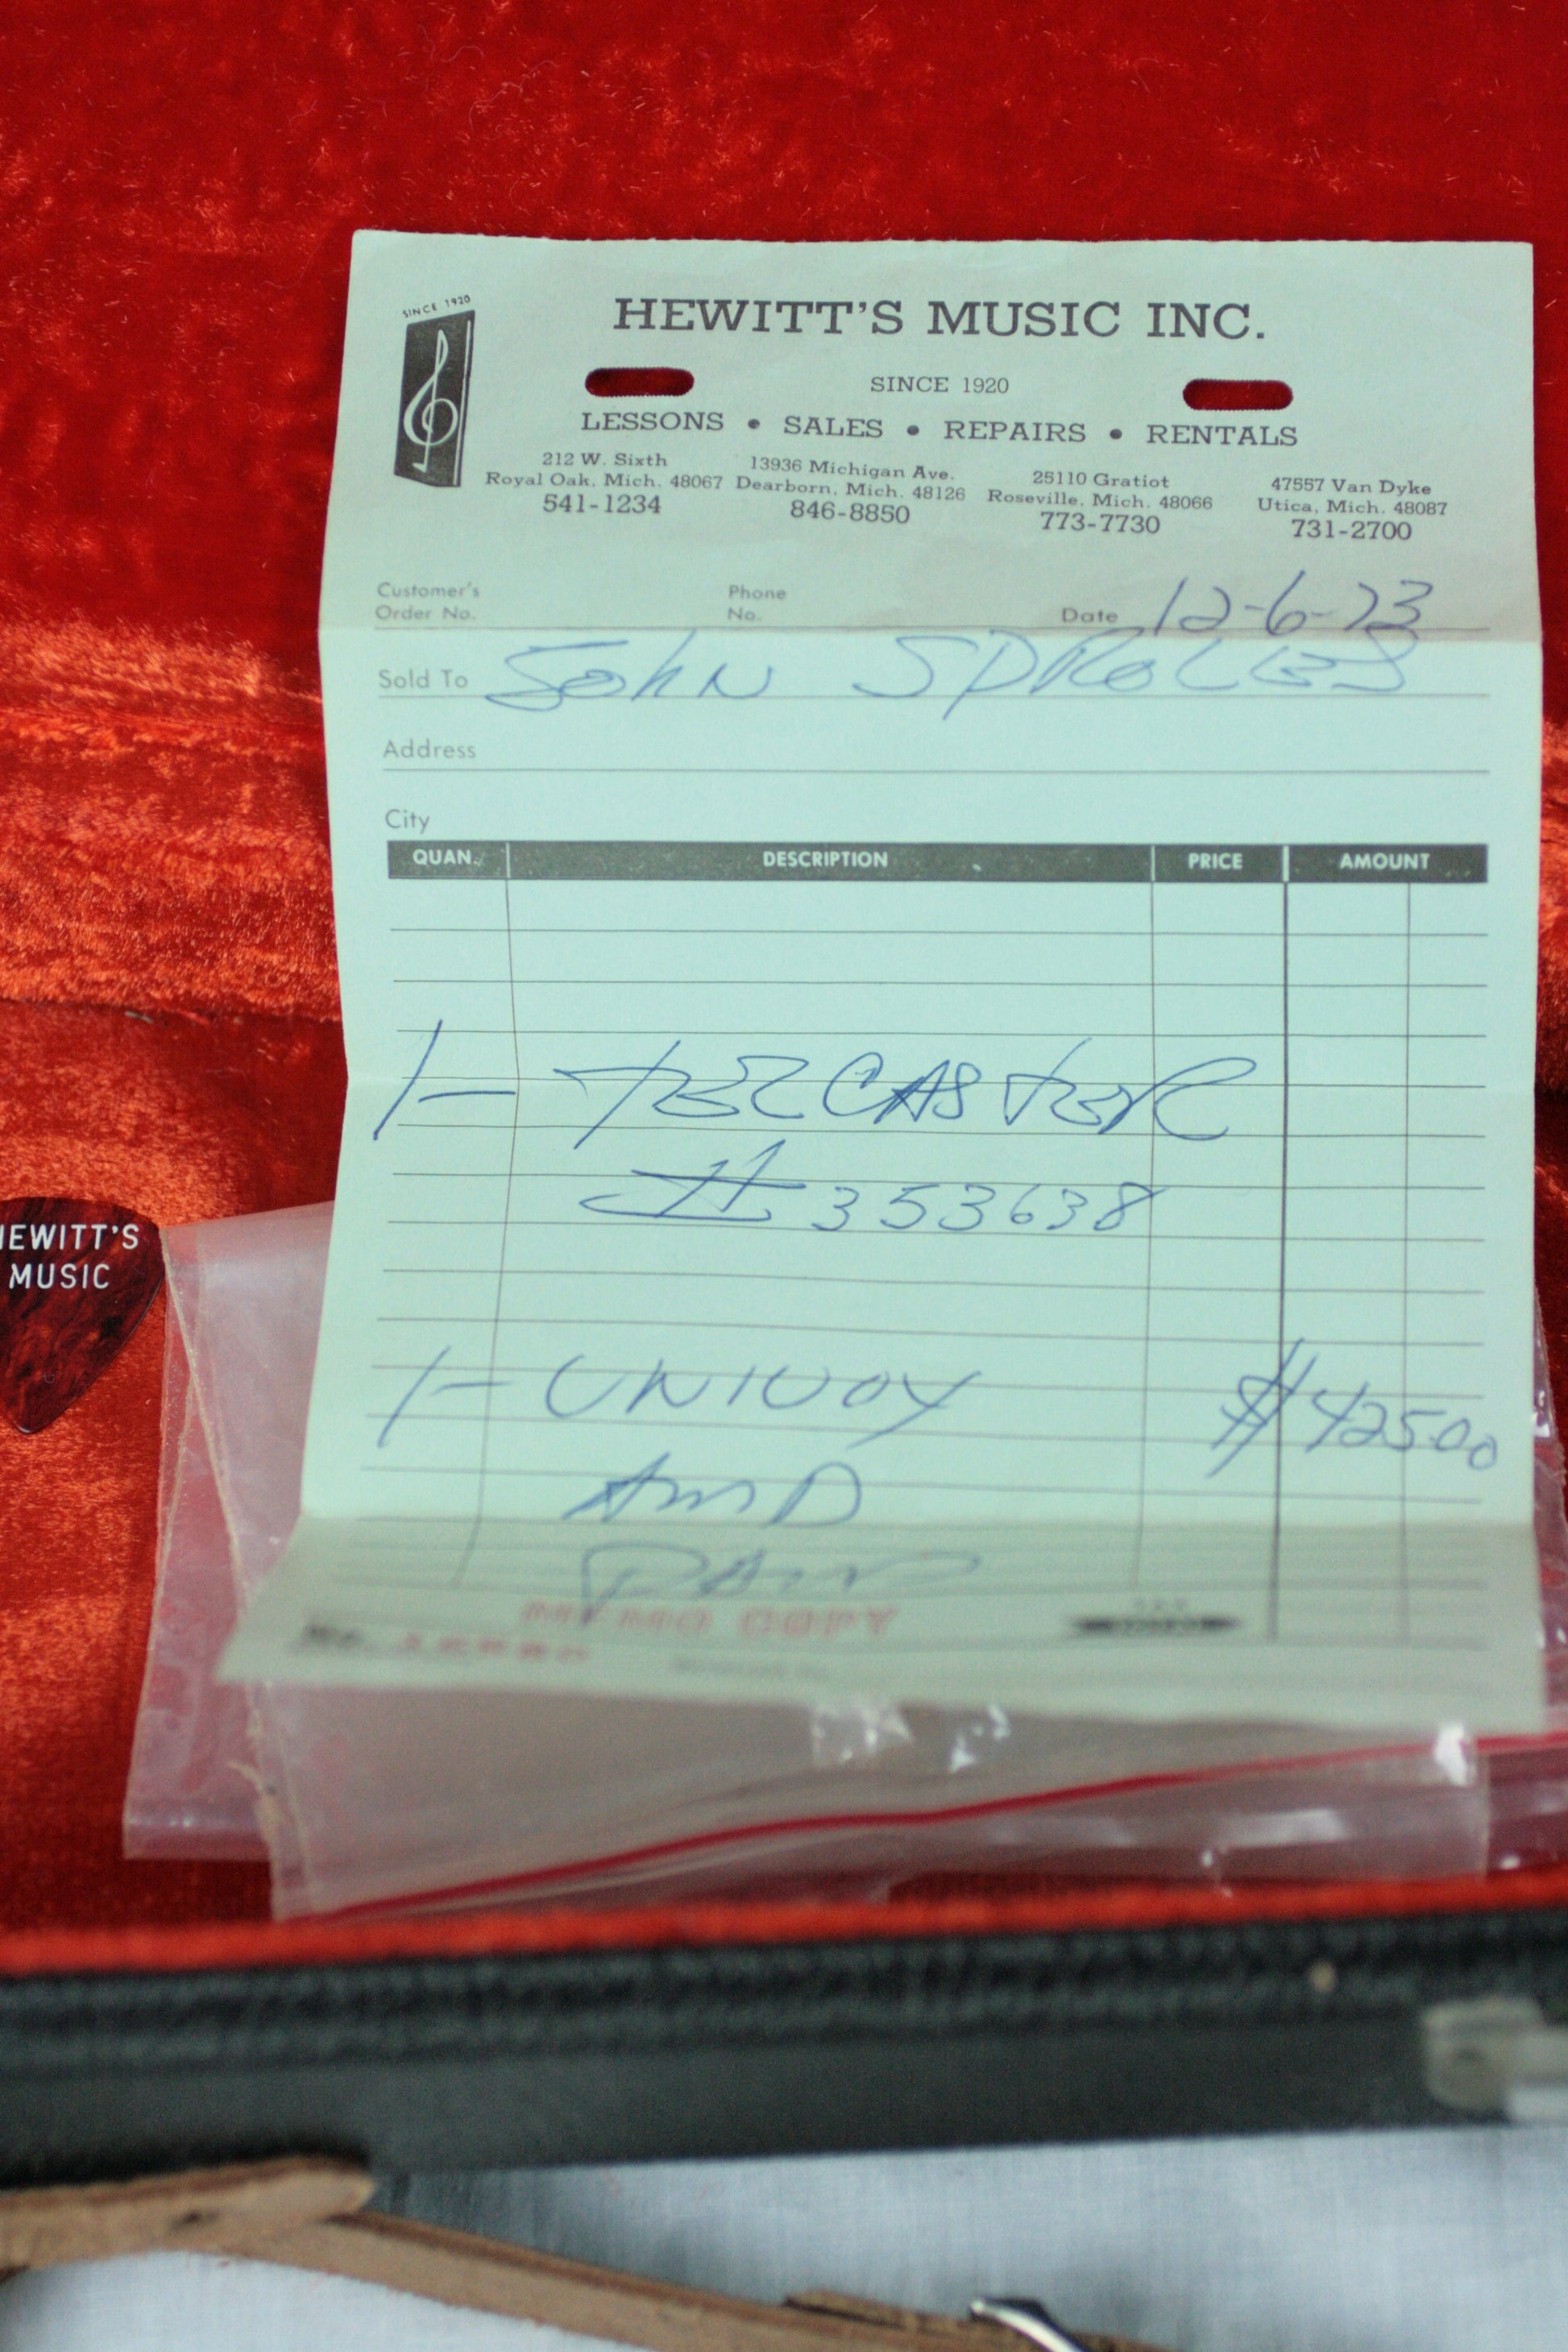 SINCE 1920
HEWITT'S MUSIC INC.
SINCE 1920
LESSONS • SALES • REPAIRS • RENTALS
212 W. Sixth
Royal Oak, Mich. 48067
541-1234
13936 Michigan Ave.
Dearborn, Mich. 48126
846-8850
25110 Gratiot
Roseville, Mich. 48066
773-7730
47557 Van Dyke
Utica, Mich. 48087
731-2700
Customer's
Order No.
Phone
No.
Date 12-6-73
Sold To JOHN SPROLLES
Address
City
QUAN. DESCRIPTION PRICE AMOUNT
1- TELCASTER
# 353638
1- UNIVOX $42500
AMP
PAID
MEMO COPY
No.
HEWITT'S
MUSIC